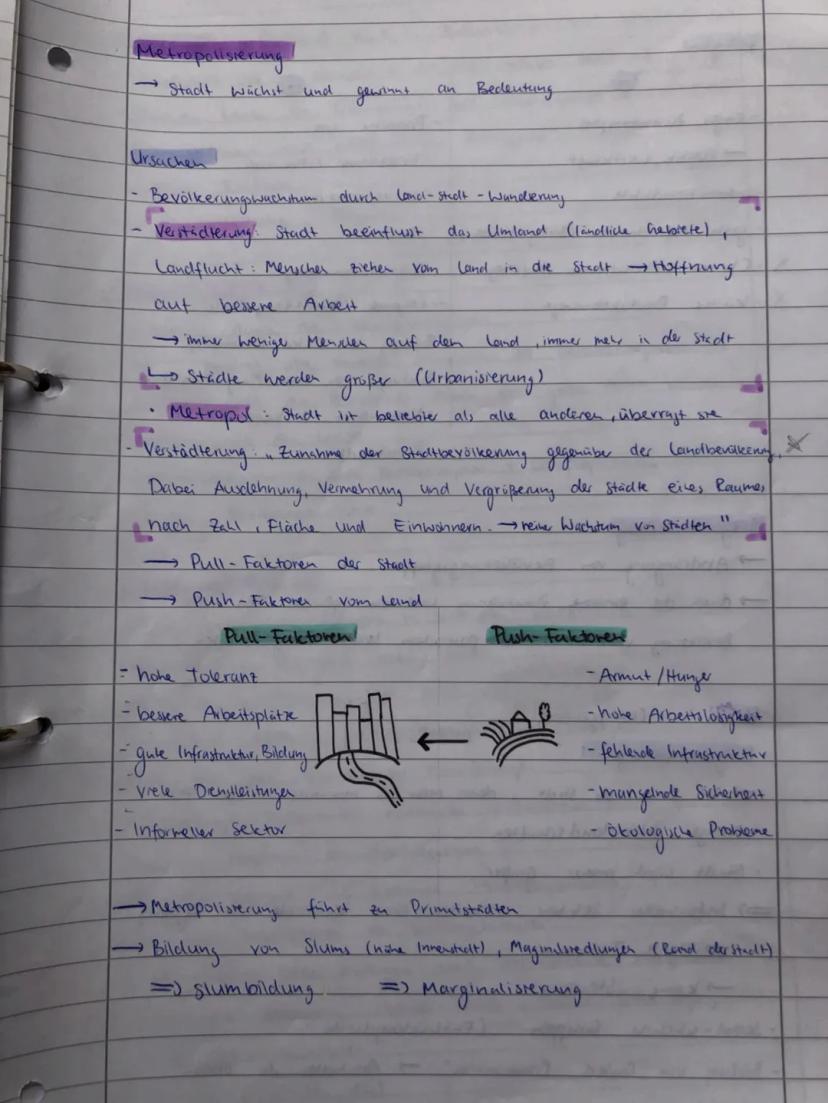 Metropolisierung
→ Stadt wächst und gewinnt an Bedeutung
Ursachen
- Bevölkerungswachstum durch Land-Stadt-Wanderung
- Verstädterung: Stadt beeinflusst das Umland (ländliche Gebiete),
Landflucht: Menschen ziehen vom Land in die Stadt → Hoffnung
auf bessere Arbeit
→ immer wenige Menschen auf dem Land, immer mehr in der Stadt
↳ Städte werden größer (Urbanisierung)
· Metropol: Stadt ist beliebter als alle anderen, überragt sie
- Verstädterung: „Zunahme der Stadtbevölkerung gegenüber der Landbevölkerung.
Dabei Ausdehnung, Vermehrung und Vergrößerung der Städte eines Raumes
nach Zahl, Fläche und Einwohnern. → reine Wachstum von Städten"
→ Pull-Faktoren der Stadt
→ Push-Faktoren vom Land
Pull-Faktoren Push-Faktoren
- hohe Toleranz - Armut/Hunger
- bessere Arbeitsplätze - hohe Arbeitslosigkeit
- gute Infrastruktur, Bildung - fehlende Infrastruktur
- viele Dienstleistungen - mangelnde Sicherheit
- Informeller Sektor - ökologische Probleme
→ Metropolisierung führt zu Primatstädten
→ Bildung von Slums (nähe Innenstadt), Marginalsiedlungen (Rand der Stadt)
⇒ Slumbildung ⇒ Marginalisierung